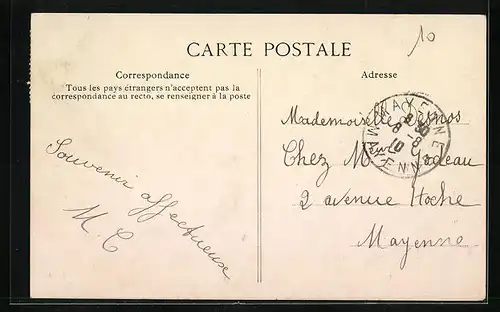 10
CARTE POSTALE
Correspondance
Tous les pays étrangers n'acceptent pas la
correspondance au recto, se renseigner à la poste
Souvenir affectueux
M. C
Adresse
Mademoiselle
Chez M
2 avenue Hoche
Mayenne
MAYENNE
8 30
8 - 8
10
MAYENNE